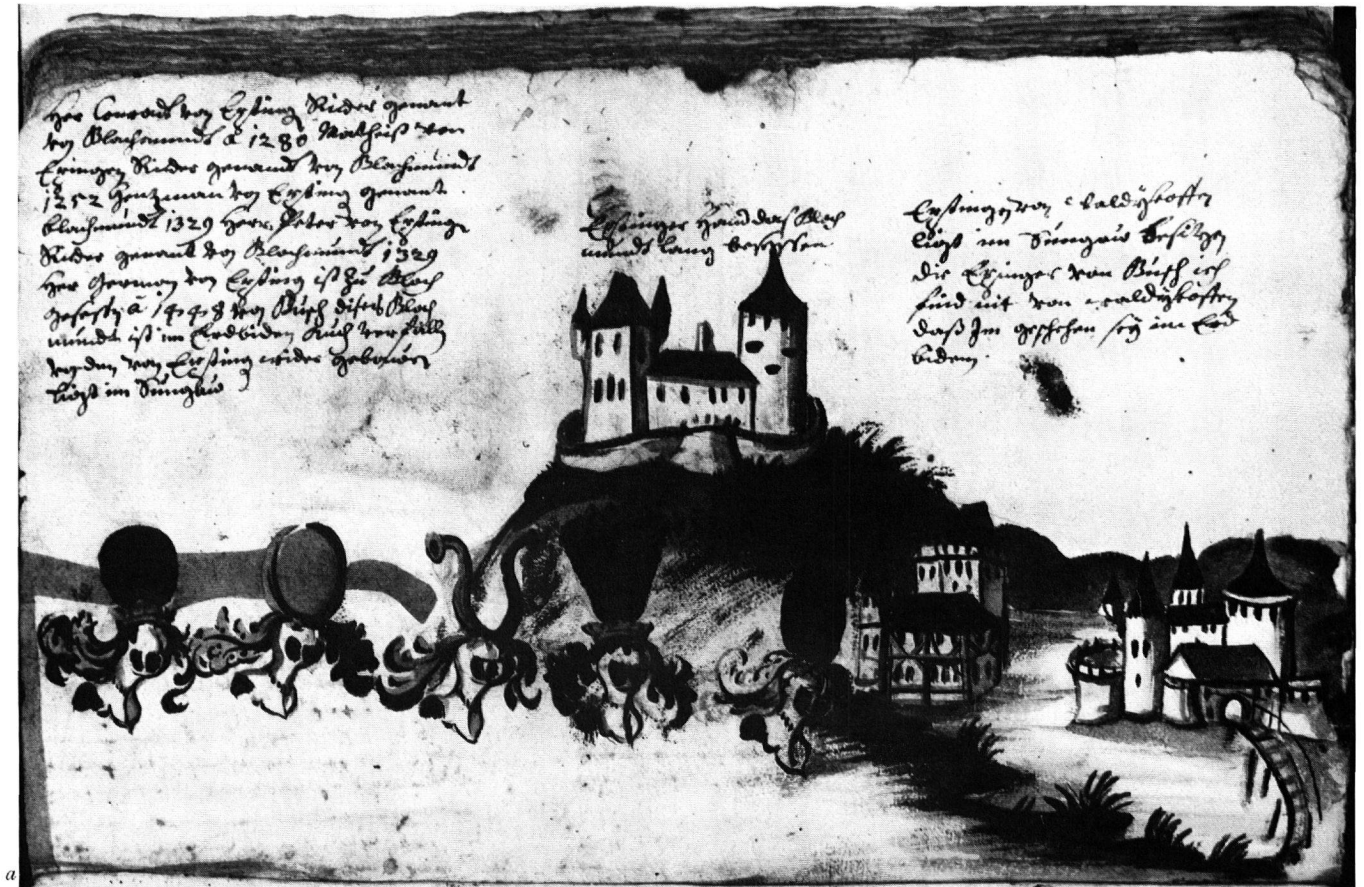 Her Conradt von Eptingen Ritter genant
von Blachmundt a 1280 Matheiß von
Epingen Ritter genandt von Blachmundt
1252 Hentzman von Epting genant
Blachmundt 1329 Herr Peter von Epting
Ritter genant von Blochmundt 1329
Her Herman von Epting ist zu Bloch
gesessen a 1448 von Buch dises Bloch
mundt ist im Erdbiden Auch verfalln
von den von Epting wider gebauwen
ligt im Sungöw
Eptinger Hand das Bloch
mundt lang besessen
Eptingen von Waldikoffen
ligt im Sungöw besitzen
die Epinger von Buch ich
find nit von waldikoffen
daß Im geschehen sey im Erd
bidem
a